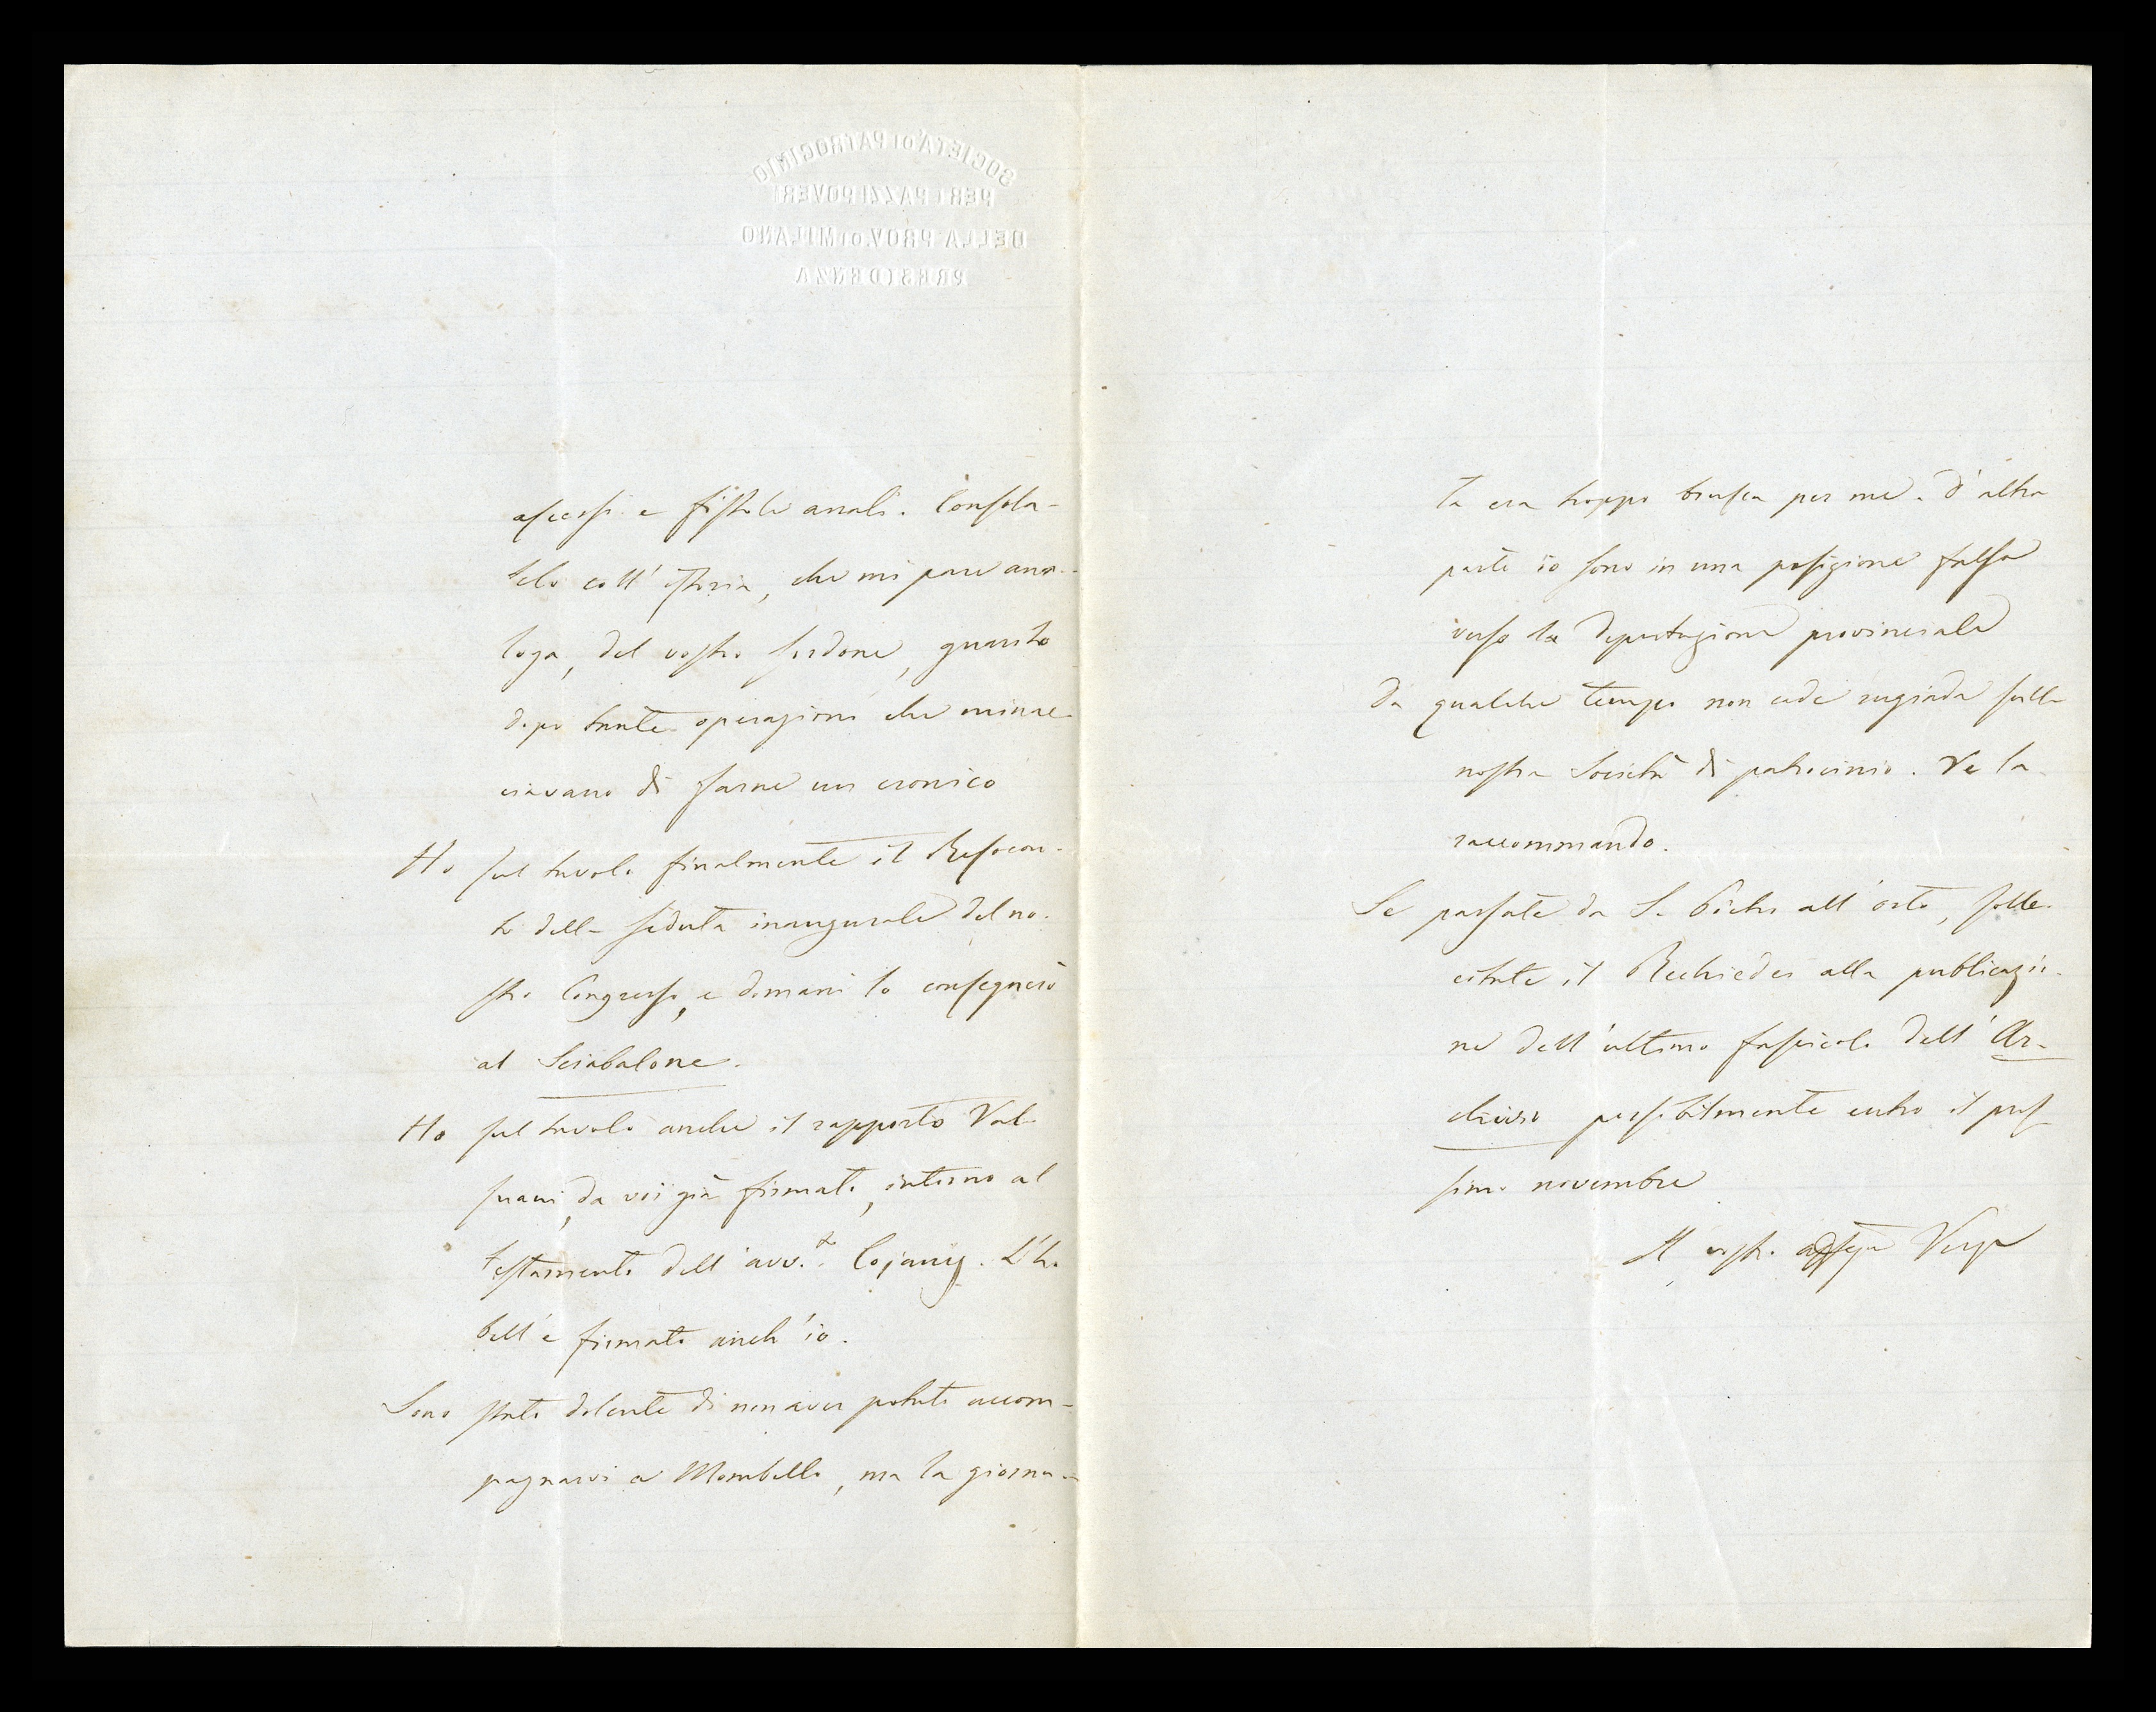 SOCIETÀ DI PATROCINIO
PER I PAZZI POVERI
DELLA PROV. DI MILANO
PRESIDENZA
ascessi e fistole anali. Consola-
telo coll'istoria, che mi pare ana-
loga, del vostro Sindone, guarito
dopo tante operazioni che minac-
ciavano di farne un cronico
Ho sul tavolo finalmente il Resocon-
to della seduta inaugurale del no-
stro Congresso, e domani lo consegnerò
al Sciabalone.
Ho sul tavolo anche il rapporto Val-
suani, da voi già firmato, intorno al
testamento dell'avv.to Cojany. L'ho
bell'e firmato anch'io.
Sono stato dolente di non aver potuto accom-
pagnarvi a Mombello, ma la giorna-
ta era troppo brusca per me. D'altra
parte io sono in una posizione falsa
verso la deputazione provinciale
Da qualche tempo non cade rugiada sulla
nostra Società di patrocinio. Ve la
raccommando.
Se passate da S. Pietro all'orto, solle-
citate il Rechiedei alla pubblicazio-
ne dell'ultimo fascicolo dell'Ar-
chivio possibilmente entro il pros
simo novembre
Il vostro Verga